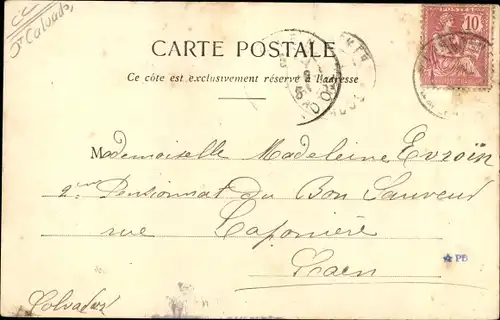 Calvados
CARTE POSTALE
Ce côté est exclusivement réservé à l'adresse
10
Mademoiselle Madeleine Evroïn
2me Pensionnat du Bon Sauveur
rue Caponière
Caen
PB
Calvados